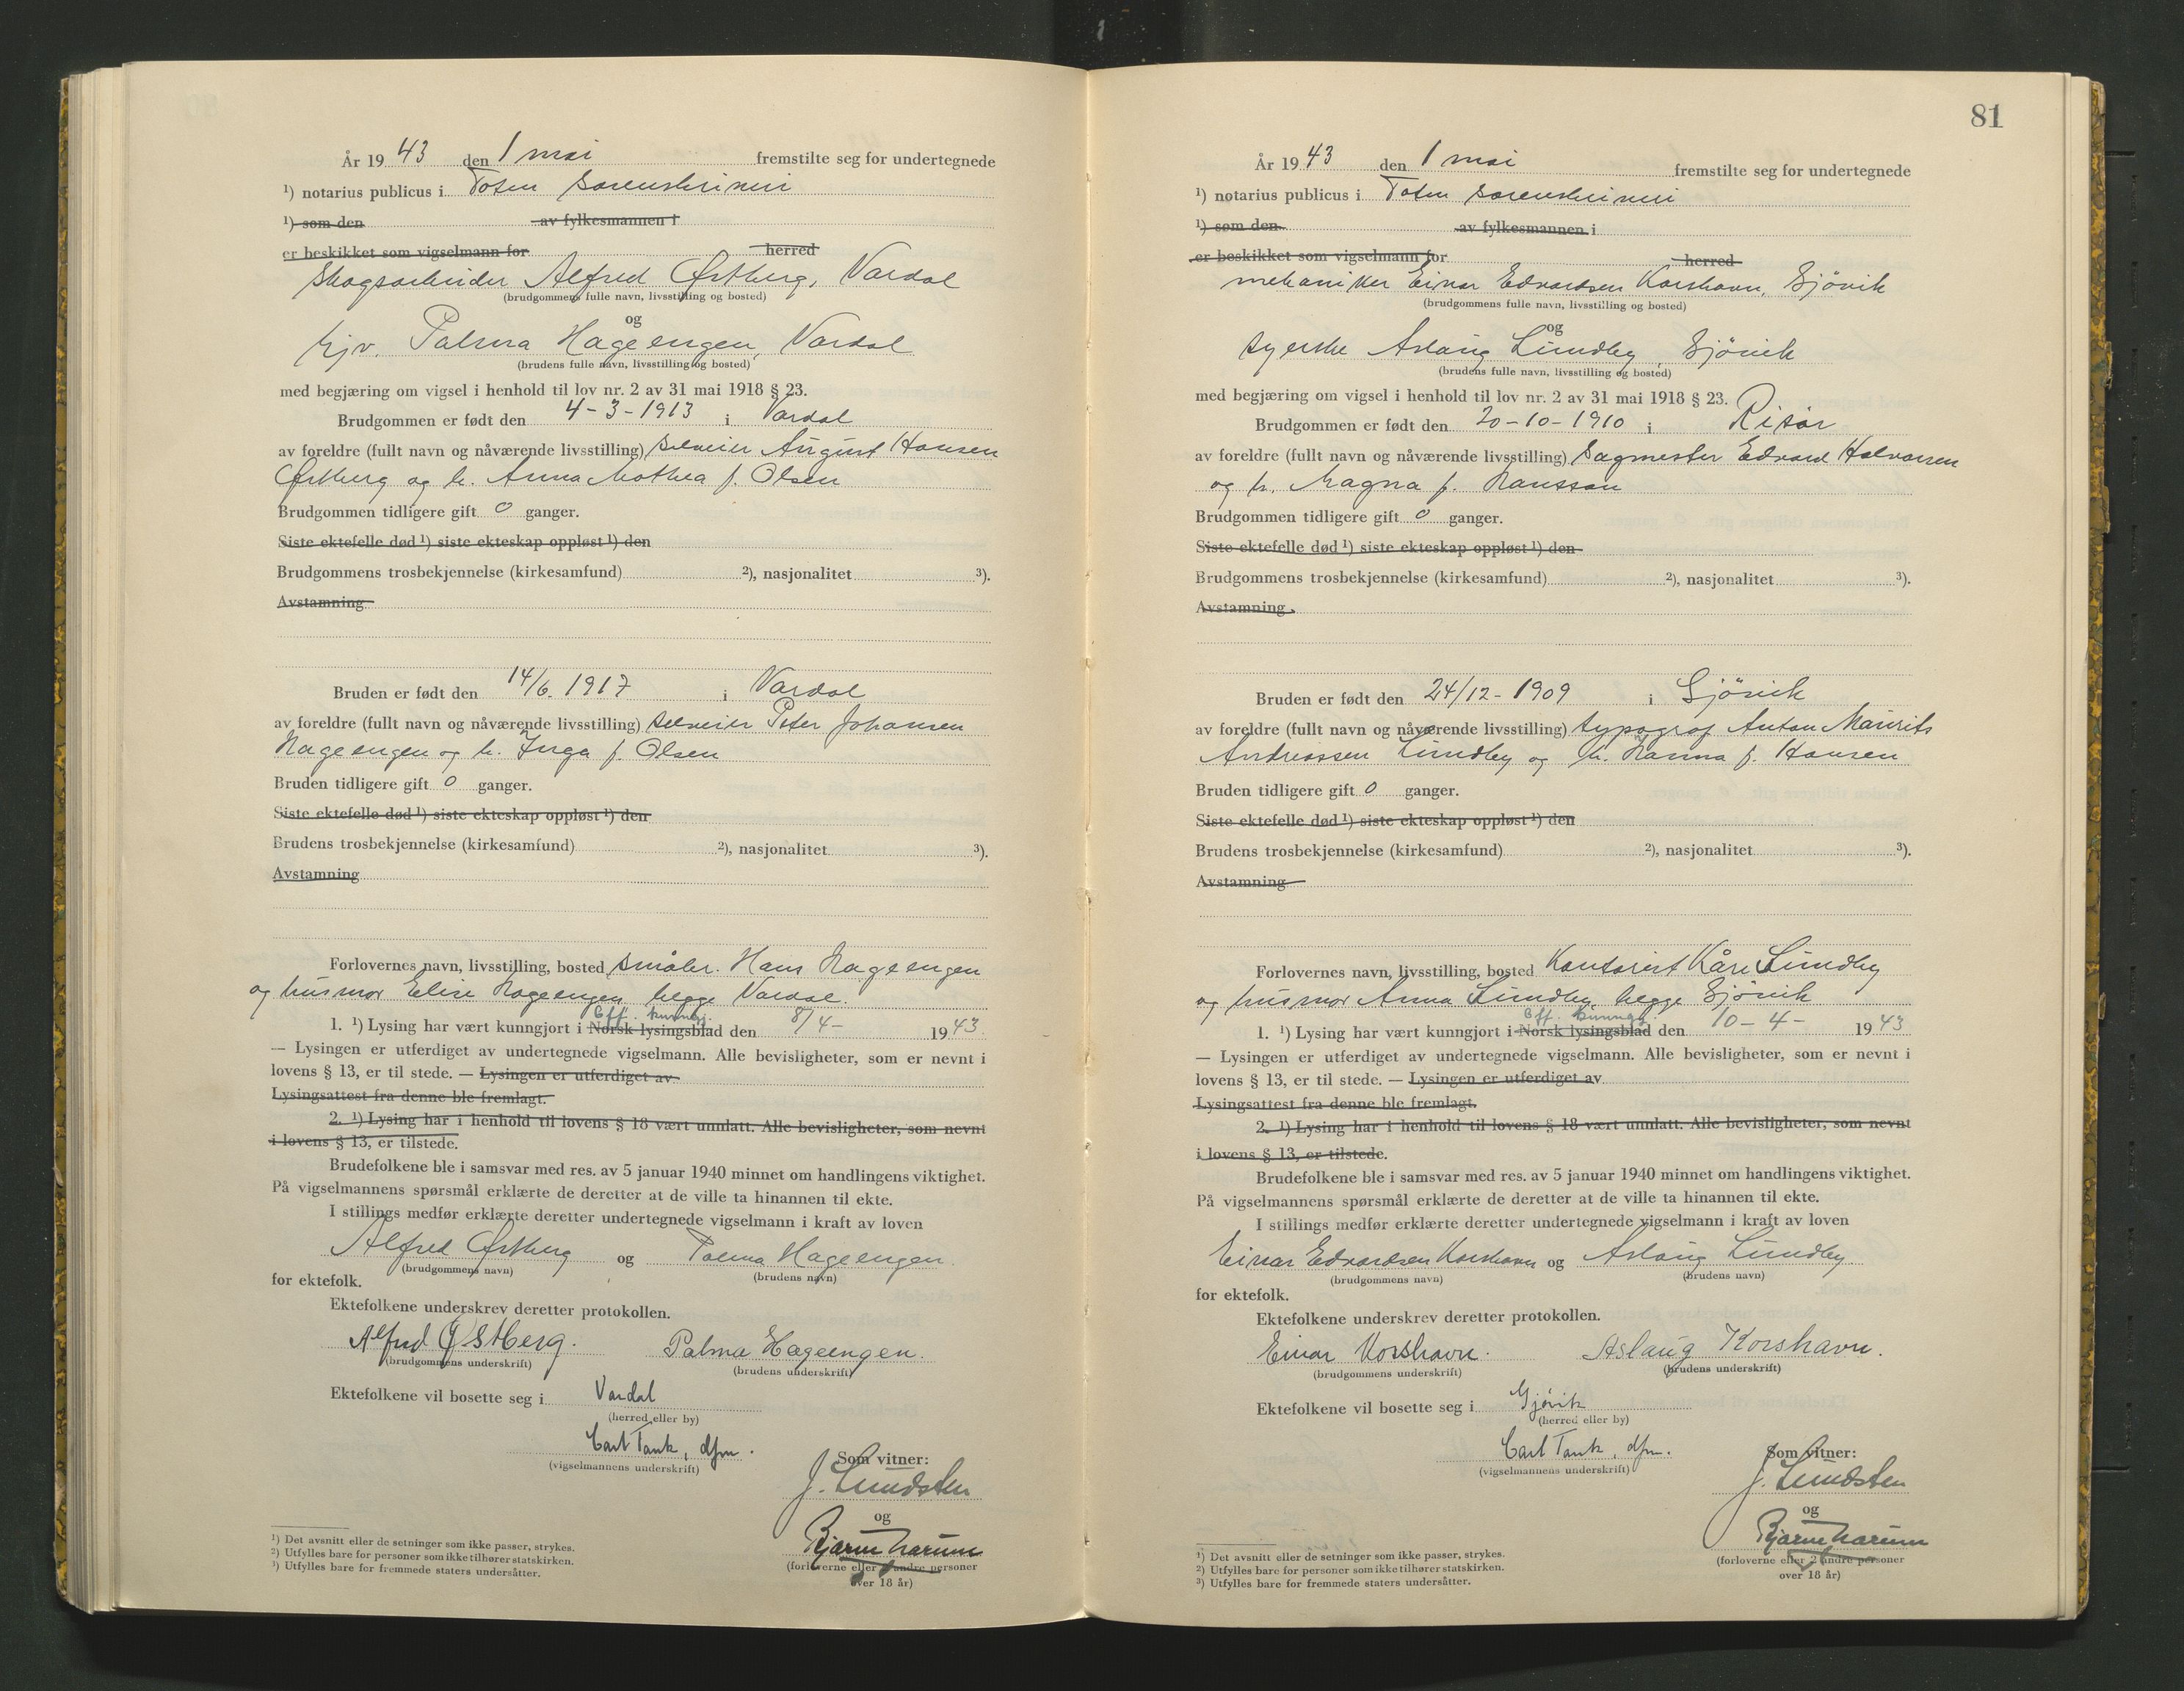 År 19 43 den 1 mai fremstilte seg for undertegnede
¹) notarius publicus i Toten sorenskriveri
¹) som den av fylkesmannen i
er beskikket som vigselmann for herred
Skogsarbeider Alfred Østberg, Vardal
(brudgommens fulle navn, livsstilling og bosted)
og
hjv. Palma Hageengen, Vardal
(brudens fulle navn, livsstilling og bosted)
med begjæring om vigsel i henhold til lov nr. 2 av 31 mai 1918 § 23.
Brudgommen er født den 4-3-1913 i Vardal
av foreldre (fullt navn og nåværende livsstilling) selveier August Hansen
Østberg og h. Anna Mathea f. Olsen
Brudgommen tidligere gift 0 ganger.
Siste ektefelle død ¹) siste ekteskap oppløst ¹) den
Brudgommens trosbekjennelse (kirkesamfund) ²), nasjonalitet ³).
Avstamning
Bruden er født den 14/6. 1917 i Vardal
av foreldre (fullt navn og nåværende livsstilling) selveier Peter Johansen
Hageengen og h. Inga f. Olsen
Bruden tidligere gift 0 ganger.
Siste ektefelle død ¹) siste ekteskap oppløst ¹) den
Brudens trosbekjennelse (kirkesamfund) ²), nasjonalitet ³).
Avstamning
Forlovernes navn, livsstilling, bosted småbr. Hans Hageengen
og husmor Elise Hageengen, begge Vardal.
Off. kunngj.
1. ¹) Lysing har vært kunngjort i Norsk lysingsblad den 8/4- 19 43
— Lysingen er utferdiget av undertegnede vigselmann. Alle bevisligheter, som er nevnt i
lovens § 13, er til stede. — Lysingen er utferdiget av
Lysingsattest fra denne ble fremlagt.
2. ¹) Lysing har i henhold til lovens § 18 vært unnlatt. Alle bevisligheter, som nevnt
i lovens § 13, er tilstede.
Brudefolkene ble i samsvar med res. av 5 januar 1940 minnet om handlingens viktighet.
På vigselmannens spørsmål erklærte de deretter at de ville ta hinannen til ekte.
I stillings medfør erklærte deretter undertegnede vigselmann i kraft av loven
Alfred Østberg og Palma Hageengen
(brudgommens navn) (brudens navn)
for ektefolk.
Ektefolkene underskrev deretter protokollen.
Alfred Østberg. Palma Hageengen.
(brudgommens underskrift) (brudens underskrift)
Ektefolkene vil bosette seg i Vardal
(herred eller by)
Carl Tank, dfm.
(vigselmannens underskrift)
Som vitner:
J. Lundsten
og
Bjarne Narum
(forloverne eller 2 andre personer
over 18 år)
¹) Det avsnitt eller de setninger som ikke passer, strykes.
²) Utfylles bare for personer som ikke tilhører statskirken.
³) Utfylles bare for fremmede staters undersåtter.
81
År 19 43 den 1 mai fremstilte seg for undertegnede
¹) notarius publicus i Toten sorenskriveri
¹) som den av fylkesmannen i
er beskikket som vigselmann for herred
mekaniker Einar Edvardsen Korshavn, Gjövik
(brudgommens fulle navn, livsstilling og bosted)
og
syerske Aslaug Lundby, Gjövik
(brudens fulle navn, livsstilling og bosted)
med begjæring om vigsel i henhold til lov nr. 2 av 31 mai 1918 § 23.
Brudgommen er født den 20-10-1910 i Risör
av foreldre (fullt navn og nåværende livsstilling) Sagmester Edvard Halvorsen
og h. Magna f. Hansson
Brudgommen tidligere gift 0 ganger.
Siste ektefelle død ¹) siste ekteskap oppløst ¹) den
Brudgommens trosbekjennelse (kirkesamfund) ²), nasjonalitet ³).
Avstamning
Bruden er født den 24/12-1909 i Gjövik
av foreldre (fullt navn og nåværende livsstilling) typograf Anton Maurits
Andreassen Lundby og h. Hanna f. Hansen
Bruden tidligere gift 0 ganger.
Siste ektefelle død ¹) siste ekteskap oppløst ¹) den
Brudens trosbekjennelse (kirkesamfund) ²), nasjonalitet ³).
Avstamning
Forlovernes navn, livsstilling, bosted Kontorist Kåre Lundby
og husmor Anna Lundby, begge Gjövik
Off. kunngj.
1. ¹) Lysing har vært kunngjort i Norsk lysingsblad den 10-4- 19 43
— Lysingen er utferdiget av undertegnede vigselmann. Alle bevisligheter, som er nevnt i
lovens § 13, er til stede. — Lysingen er utferdiget av
Lysingsattest fra denne ble fremlagt.
2. ¹) Lysing har i henhold til lovens § 18 vært unnlatt. Alle bevisligheter, som nevnt
i lovens § 13, er tilstede.
Brudefolkene ble i samsvar med res. av 5 januar 1940 minnet om handlingens viktighet.
På vigselmannens spørsmål erklærte de deretter at de ville ta hinannen til ekte.
I stillings medfør erklærte deretter undertegnede vigselmann i kraft av loven
Einar Edvardsen Korshavn og Aslaug Lundby
(brudgommens navn) (brudens navn)
for ektefolk.
Ektefolkene underskrev deretter protokollen.
Einar Korshavn. Aslaug Korshavn.
(brudgommens underskrift) (brudens underskrift)
Ektefolkene vil bosette seg i Gjövik
(herred eller by)
Carl Tank, dfm.
(vigselmannens underskrift)
Som vitner:
J. Lundsten
og
Bjarne Narum
(forloverne eller 2 andre personer
over 18 år)
¹) Det avsnitt eller de setninger som ikke passer, strykes.
²) Utfylles bare for personer som ikke tilhører statskirken.
³) Utfylles bare for fremmede staters undersåtter.